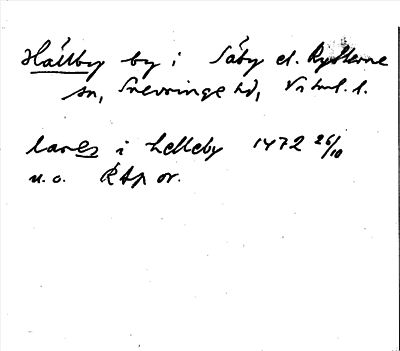 Hällby by i Säby el. Rytterne
sn, Snevringe hd, Vstml. l.
lares i Helleby 1472 26/10
u. o. RAp or.